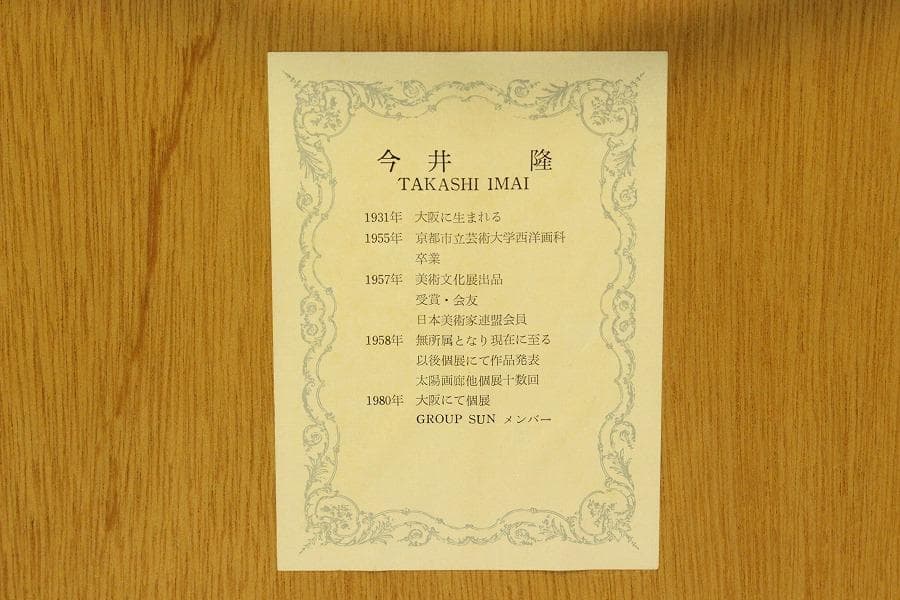 今井　隆
TAKASHI IMAI
1931年 大阪に生まれる
1955年 京都市立芸術大学西洋画科
卒業
1957年 美術文化展出品
受賞・会友
日本美術家連盟会員
1958年 無所属となり現在に至る
以後個展にて作品発表
太陽画廊他個展十数回
1980年 大阪にて個展
GROUP SUN メンバー